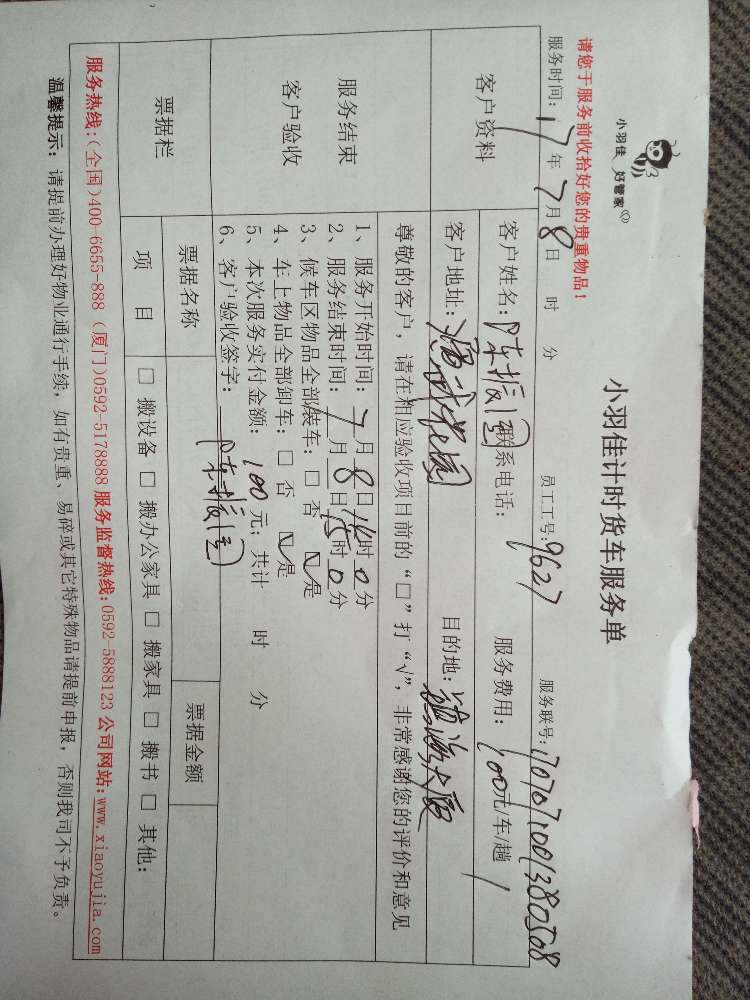 小羽佳 好管家
小羽佳计时货车服务单
请您于服务前收拾好您的贵重物品!
服务时间: 17年 7月 8日 时 分 员工工号: 9627 服务联号: 1707071001380508
客户资料
客户姓名: 陈振 联系电话: 服务费用: 100元/车/趟
客户地址: 花园 目的地:
尊敬的客户, 请在相应验收项目前的“□”打“√”, 非常感谢您的评价和意见
服务结束
客户验收
1、服务开始时间: 7月8日14时0分
2、服务结束时间: 7月8日15时0分
3、候车区物品全部装车: □ 否 ☑是
4、车上物品全部卸车: □ 否 ☑是
5、本次服务实付金额: 100元; 共计 时 分
6、客户验收签字: 陈振
票据栏
票据名称 票据金额
项 目 □ 搬设备 □ 搬办公家具 □ 搬家具 □ 搬书 □ 其他:
服务热线:(全国)400-6655-888 (厦门)0592-5178888 服务监督热线:0592-5888123 公司网站:www.xiaoyujia.com
温馨提示: 请提前办理好物业通行手续, 如有贵重、易碎或其它特殊物品请提前申报, 否则我司不予负责。